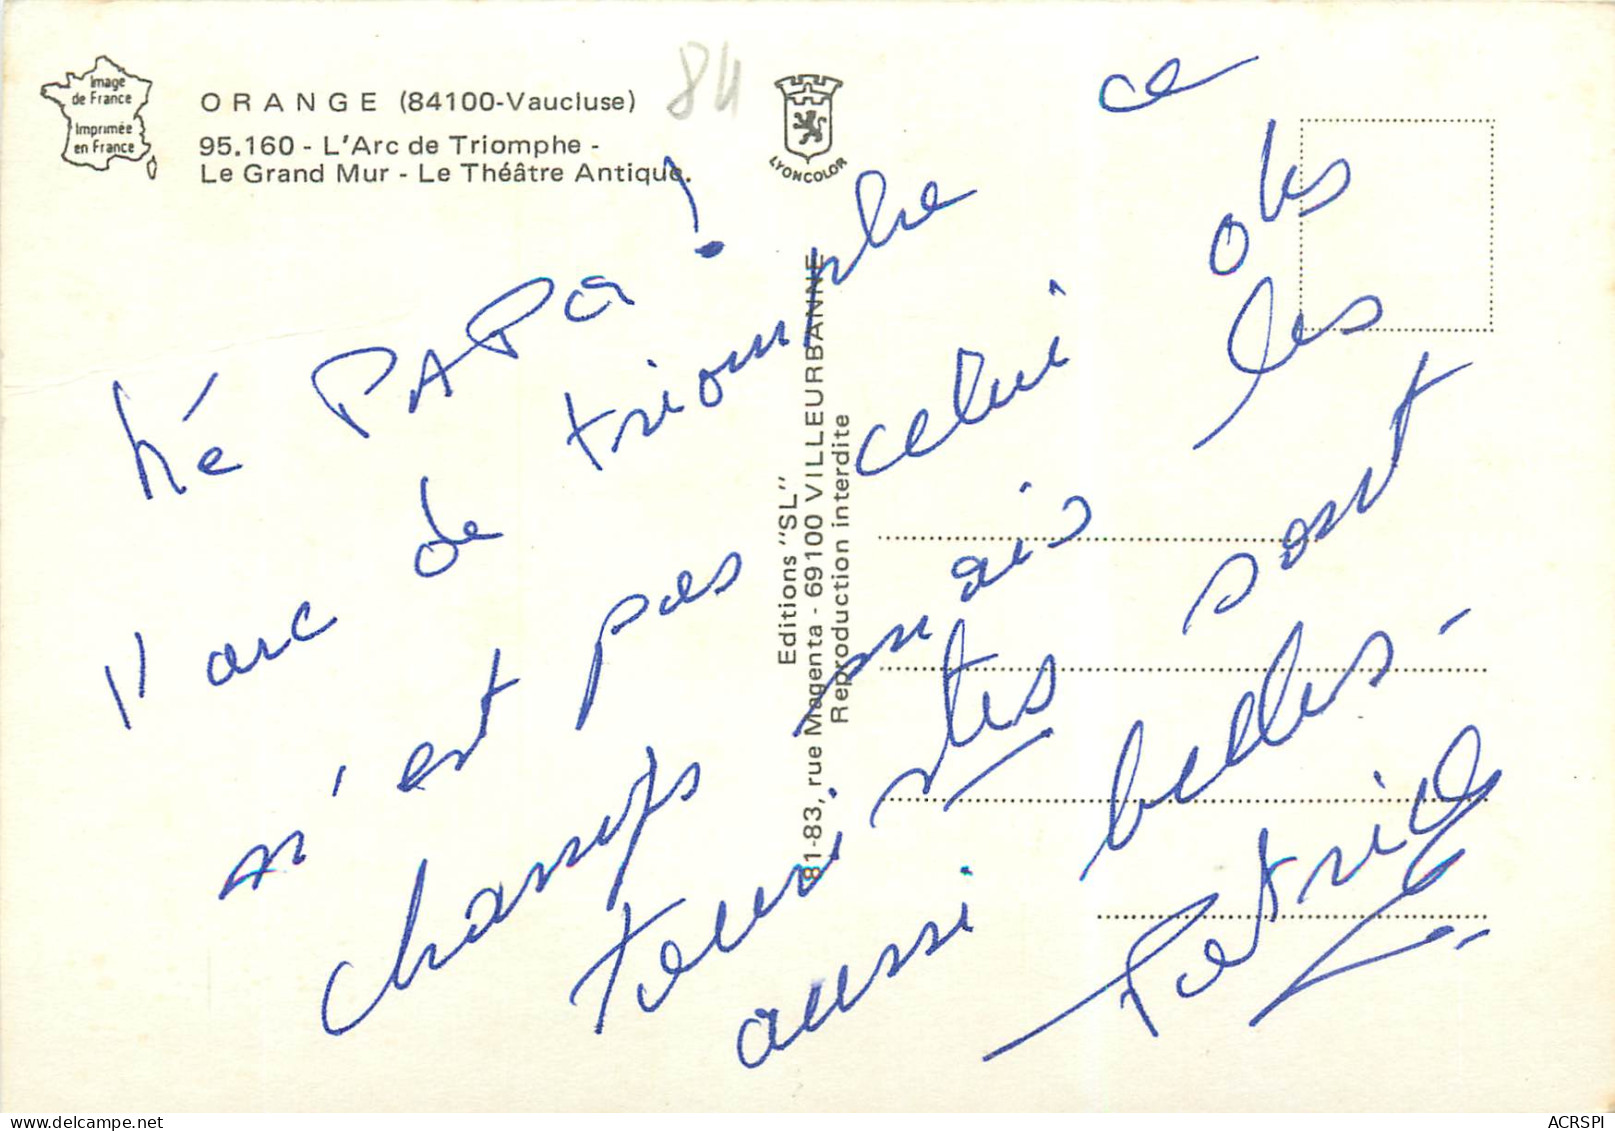 Image
de France
Imprimée
en France
ORANGE (84100-Vaucluse)
95.160 - L'Arc de Triomphe -
Le Grand Mur - Le Théâtre Antique.
84
LYONCOLOR
Editions "SL"
81-83, rue Magenta - 69100 VILLEURBANNE
Reproduction interdite
hé PAPa !
l'arc de triomphe ce
n'est pas celui des
champs mais les
touristes sont
aussi belles -
Patrick
ACRSPI